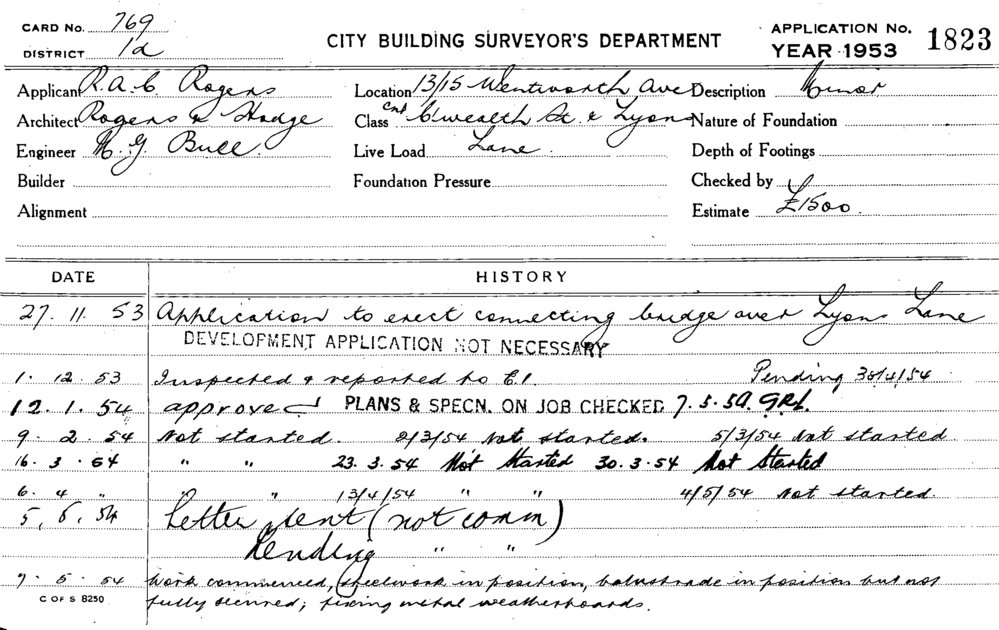 CARD No. 769
DISTRICT 1a
CITY BUILDING SURVEYOR'S DEPARTMENT
APPLICATION No. 1823
YEAR 1953
Applicant R.A.C. Rogers
Location 13/15 Wentworth Ave
Description Minor
Architect Rogers & Hodge
Class cnr C'wealth St & Lyons
Nature of Foundation
Engineer N. G. Bull.
Live Load Lane.
Depth of Footings
Builder
Foundation Pressure
Checked by
Alignment
Estimate £1500.
DATE HISTORY
27. 11. 53 Application to erect connecting bridge over Lyons Lane
DEVELOPMENT APPLICATION NOT NECESSARY
1. 12. 53 Inspected & reported to C.I. Pending 30/4/54
12. 1. 54 approved PLANS & SPECN. ON JOB CHECKED 7.5.54. GRL.
9. 2. 54 Not started. 2/3/54 Not started. 5/3/54 Not started
16. 3. 54 " " 23. 3. 54 Not Started 30. 3. 54 Not Started
6. 4 " " " 13/4/54 " " 4/5/54 Not started.
5, 5, 54 Letter sent (not comm)
Pending " "
7. 5. 54 Work commenced, steelwork in position, balustrade in position but not
C OF S 8250
fully secured; fixing metal weatherboards.